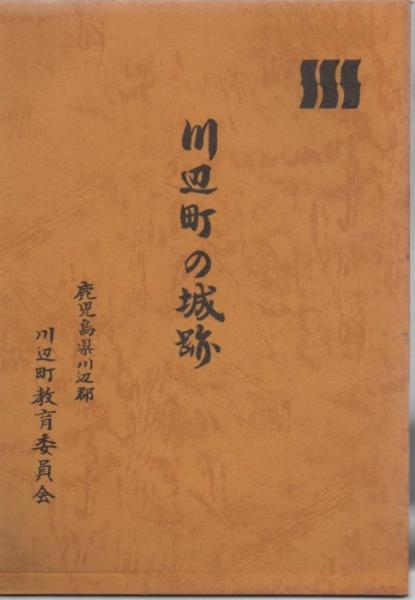 川辺町の城跡
鹿児島県川辺郡
川辺町教育委員会